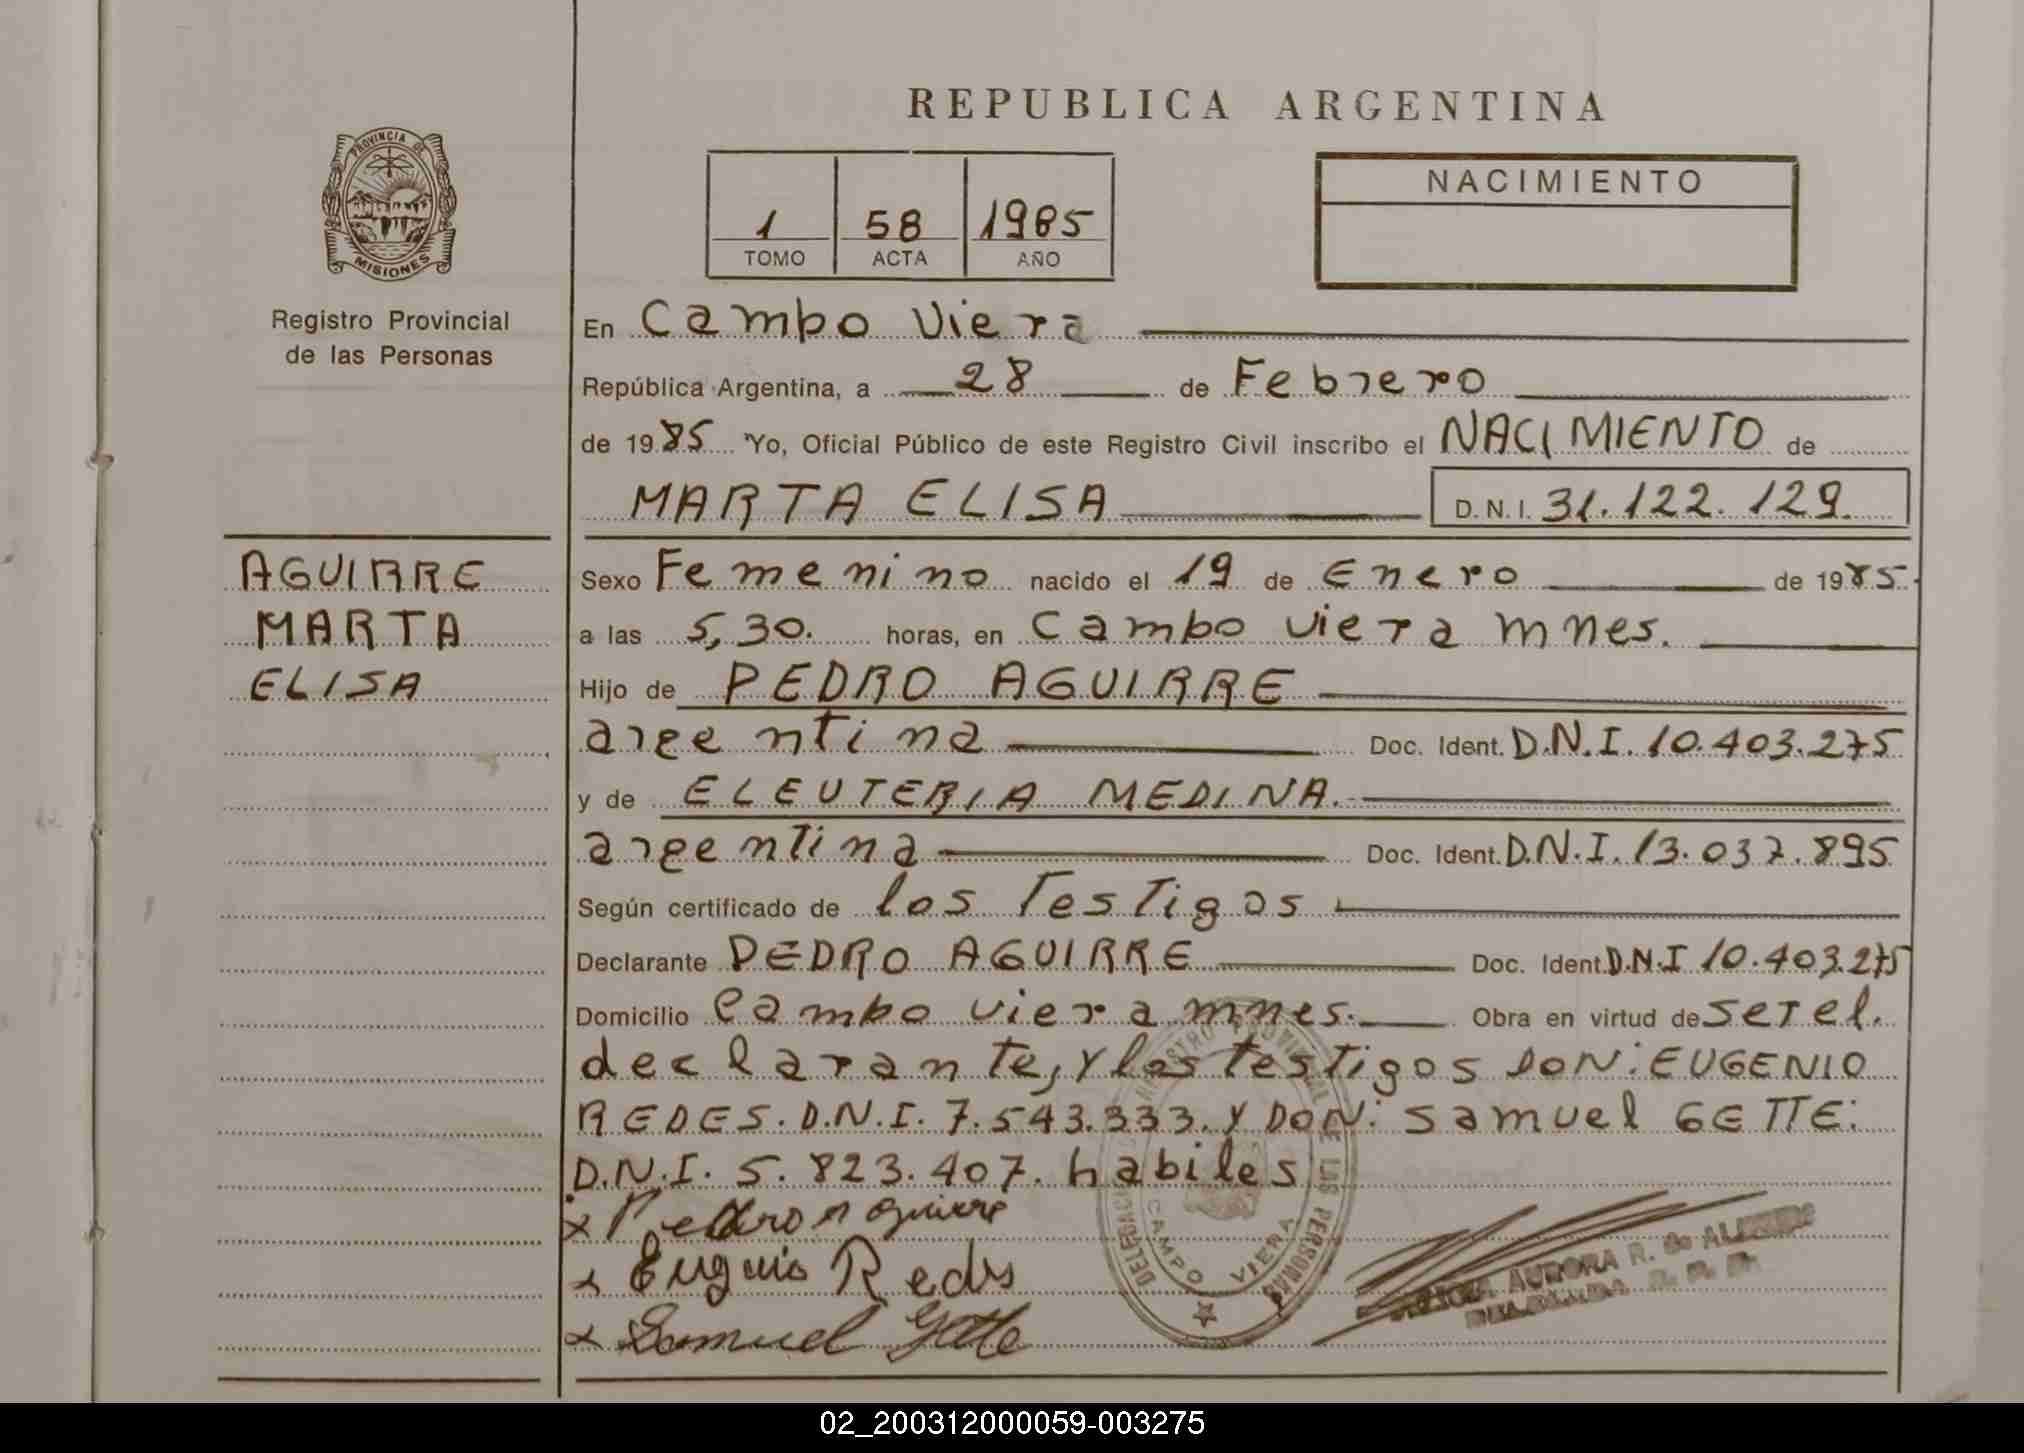 REPUBLICA ARGENTINA
PROVINCIA DE
MISIONES
Registro Provincial
de las Personas
1 58 1985
TOMO ACTA AÑO
NACIMIENTO
En Campo Viera
República Argentina, a 28 de Febrero
de 1985 Yo, Oficial Público de este Registro Civil inscribo el NACIMIENTO de
MARTA ELISA D.N.I. 31.122.129.
AGUIRRE
MARTA
ELISA
Sexo Femenino nacido el 19 de Enero de 1985
a las 5,30. horas, en Campo Viera mnes.
Hijo de PEDRO AGUIRRE
argentina Doc. Ident. D.N.I. 10.403.275
y de ELEUTERIA MEDINA.
argentina Doc. Ident. D.N.I. 13.037.895
Según certificado de los Testigos
Declarante PEDRO AGUIRRE Doc. Ident. D.N.I 10.403.275
Domicilio Campo viera mnes. Obra en virtud de ser el.
declarante, y los testigos DON: EUGENIO
REDES. D.N.I. 7.543.333. y DON: Samuel GETTE:
D.N.I. 5.823.407. habiles
x Pedro Aguirre
x Eugenio Redes
x Samuel Gette
CAMPO VIERA
AURORA R. de
02_200312000059-003275